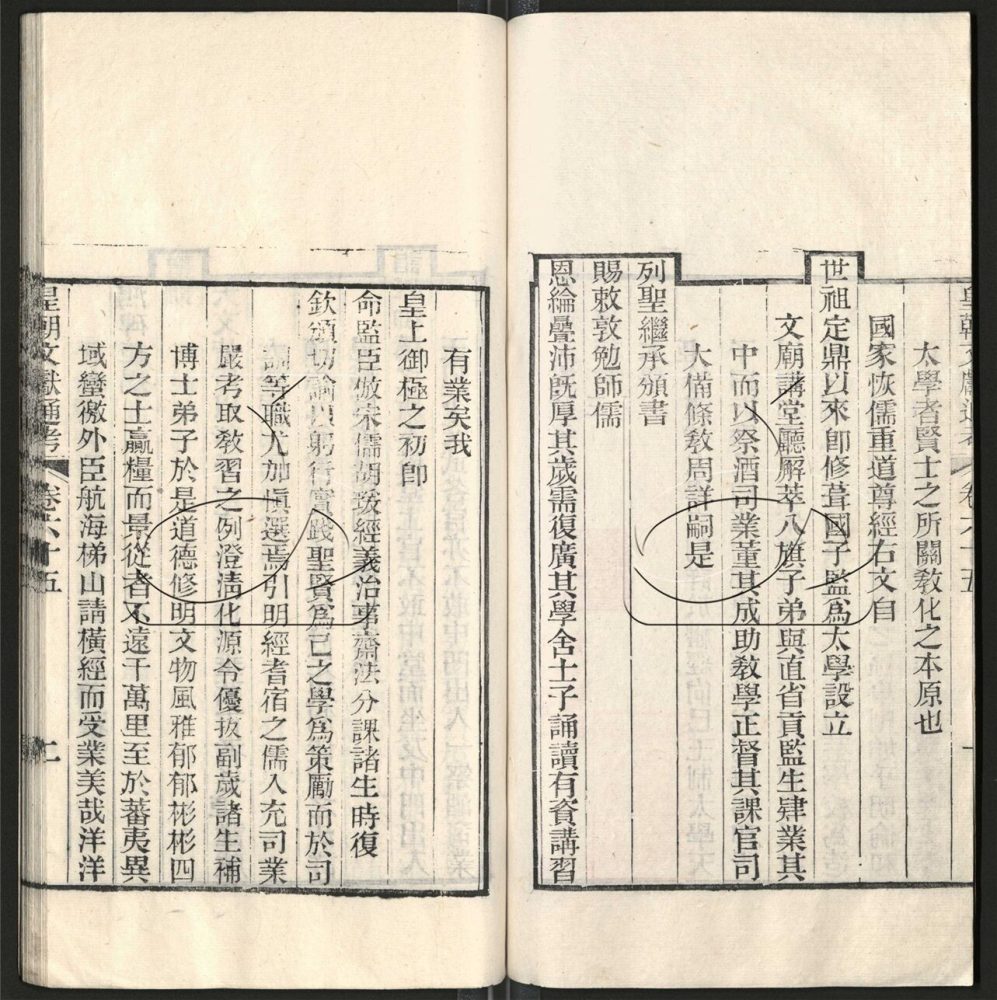 太學者賢士之所關敎化之本原也
國家恢儒重道尊經右文自
世祖定鼎以來卽修葺國子監爲太學設立
文廟講堂廳廨萃八旗子弟與直省貢監生肄業其
中而以祭酒司業董其成助敎學正督其課官司
大備條敎周詳嗣是
列聖繼承頒書
賜敕敦勉師儒
恩綸疊沛旣厚其歲需復廣其學舍士子誦讀有資講習
有業矣我
皇上御極之初卽
命監臣倣宋儒胡瑗經義治事齋法分課諸生時復
欽頒切諭以躬行實踐聖賢爲己之學爲策勵而於司
訓等職尤加愼選焉引明經耆宿之儒入充司業
嚴考取敎習之例澄淸化源令優拔副歲諸生補
博士弟子於是道德修明文物風雅郁郁彬彬四
方之士贏糧而景從者不遠千萬里至於蕃夷異
域蠻徼外臣航海梯山請橫經而受業美哉洋洋
皇朝文獻通考 卷六十五 二